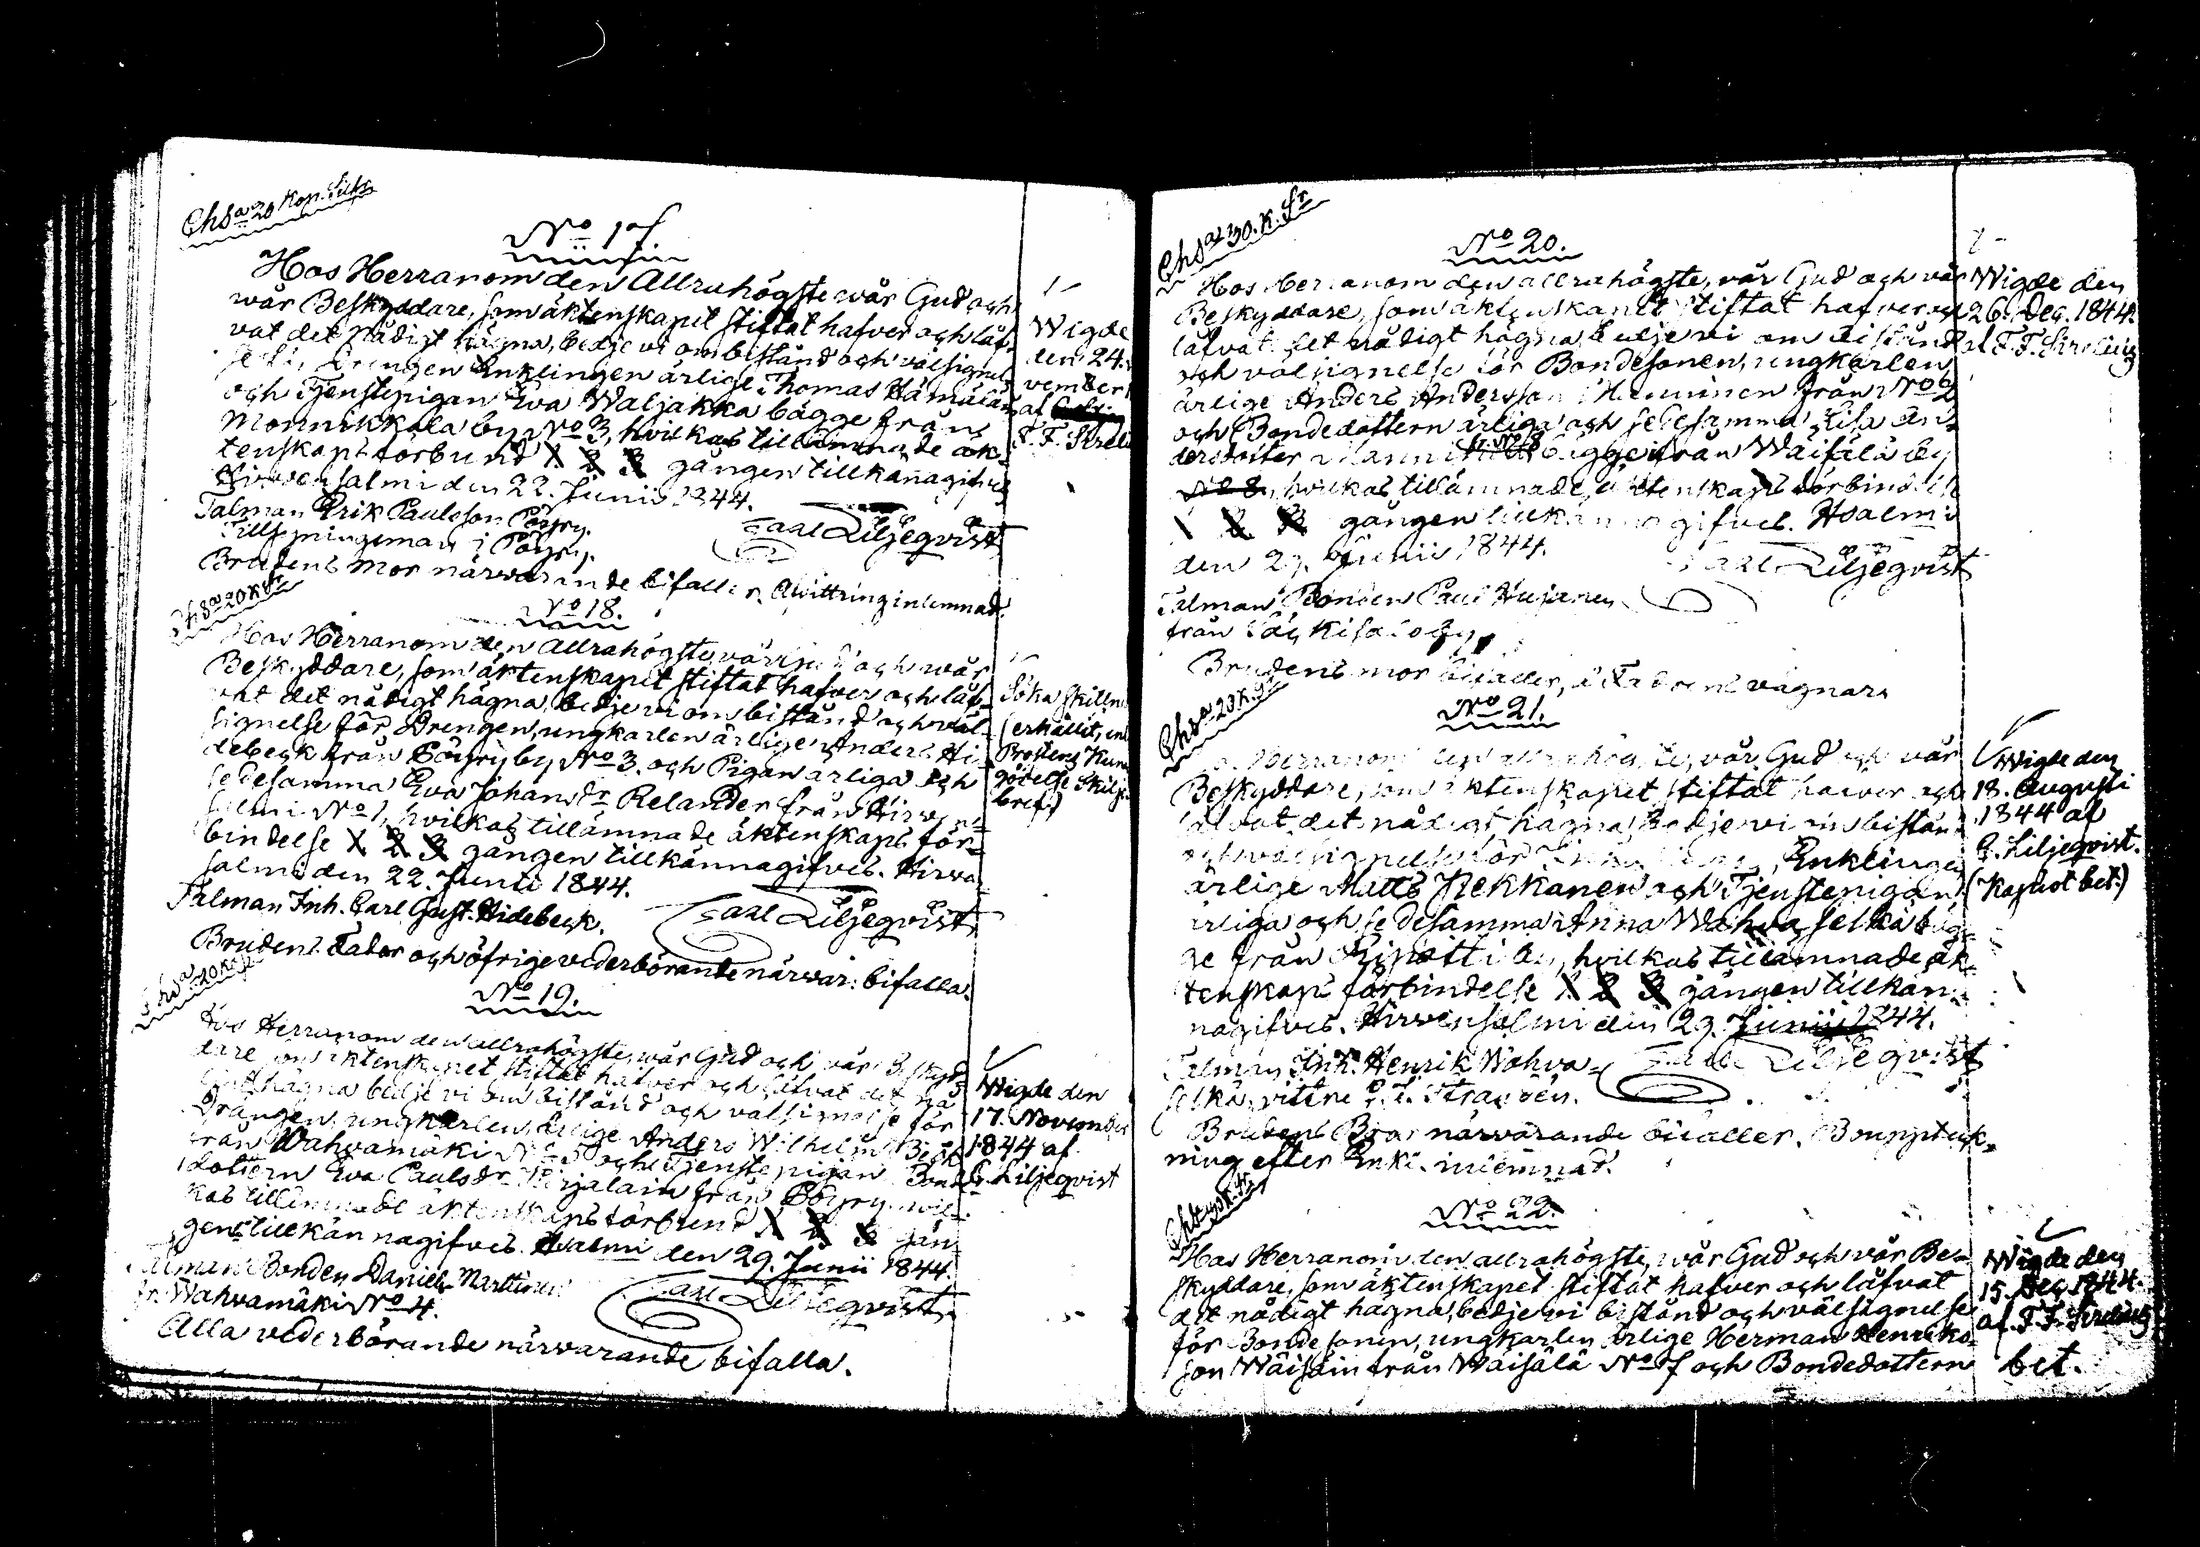 Chsa 20 Kop. Silfr
No 17.
Hos Herranom den Allrahögste wår Gud och
wår Beskyddare, som äktenskapet stiftat hafver och låf-
vat det nådigt hägna, bedje vi om bistånd och välsignel-
se för Drengen Enklingen ärlige Thomas Hämäläin
och Tjenstepigan Eva Waljakka bägge från
Monnikkala by No 3, hvilkas tillämnade äk-
tenskapsförbund 1 2 3 gången tillkännagifves
Hirvensalmi den 22. Junii 1844.
Talman Erik Paulsson Pöyry.
i Pöyry.
Carl Liljeqvist
Brudens mor närvarande bifaller. Qwittring inlemnad.
Wigde
den 24. 
vember
af
F. F. Sireli
Chsa 20 K Sr
No 18.
Hos Herranom den Allrahögste, vår Gud och wår
Beskyddare, som äktenskapet stiftat hafver och låf-
vat det nådigt hägna, bedje vi om bistånd och väl-
signelse för Drengen, ungkarlen ärlige Anders Hi-
debeck från Pöyry by No 3. och Pigan ärliga och
sedesamma Eva Johansdr Relander från Hirven-
salmi No 1, hvilkas tillämnade äktenskaps för-
bindelse 1 2 3 gången tillkännagifves. Hirven-
salmi den 22. Junii 1844.
Talman Inh. Carl Gust. Hidebeck.
Carl Liljeqvist
Brudens Fader och öfrige vederbörande närvar: bifalla.
Söka skilln
(erhållit, enl
Prostens Kun
görelse Skilje
bref)
Chsa 20 K
No 19.
Hos Herranom den allrahögste, wår Gud och vår Beskyd-
dare, som äktenskapet stiftat hafver och låfvat det nå-
digt hägna bedje vi om bistånd och välsignelse för
Drängen, ungkarlen, ärlige Anders Wilhelm Beck
från Wahvamäki No 5 och Tjenstepigan Bonde-
dottern Eva Paulsdr Karjalain från Pöyry, hvil-
kas tillämnade äktenskapsförbund 1 2 3 gån-
gen tillkännagifves. Hsalmi den 29. Junii 1844.
Talman Bonden Daniel Marttinen
fr. Wahvamäki No 4.
Carl Liljeqvist
Alla vederbörande närvarande bifalla.
Wigde den
17. November
1844 af
C. Liljeqvist
Chsa 30. K. Sr
No 20.
Hos Herranom den allrahögste, vår Gud och vår
Beskyddare, som äktenskapet stiftat hafver och
låfvat det nådigt hägna, bedje vi om bistånd
och välsignelse för Bondesonen, ungkarlen,
ärlige Anders Andersson Manninen från No 2
och Bondedottern ärliga och sedesamma Lisa An-
dersdotter fr. No 8 bägge från Wäisälä by
No 8, hvilkas tillämnade äktenskaps förbindelse
1 2 3 gången tillkännagifves. Hsalmi
den 29. Junii 1844.
Carl Liljeqvist
Talman Bonden Paul
från
Brudens mor bifaller, å Fadrens vägnar
Wigde den
26. Dec. 1844.
af F. F. Sirelius
Chsa 20 K. Sr
No 21.
Hos Herranom den allrahögste, vår Gud och vår
Beskyddare, som äktenskapet stiftat hafver och
låfvat det nådigt hägna, bedje vi om bistånd
och välsignelse för Enklingen
ärlige Matts Pekkanen och Tjenstepigan
ärliga och sedesamma Anna Wahvaselkä bäg-
ge från Ripatti by, hvilkas tillämnade äk-
tenskaps förbindelse 1 2 3 gången tillkän-
nagifves. Hirvensalmi den 29. Junii 1844.
Talman Inh. Henrik Wahva-
selkä, vittne
Carl Liljeqvist
Brudens Bror närvarande bifaller. Boupptek-
ning efter Enkl. inlemnad.
Wigde den
18. Augusti
1844 af
C. Liljeqvist.
(Kapust bet.)
No 22.
Hos Herranom den allrahögste, vår Gud och vår Be-
skyddare, som äktenskapet stiftat hafver och låfvat
det nådigt hägna, bedje vi bistånd och välsignelse
för Bondesonen, ungkarlen ärlige Herman Henriks-
son Wäisäin från Wäisälä No 7 och Bondedottern
Wigde den
15. Dec 1844.
af F. F. Sirelius
bet.